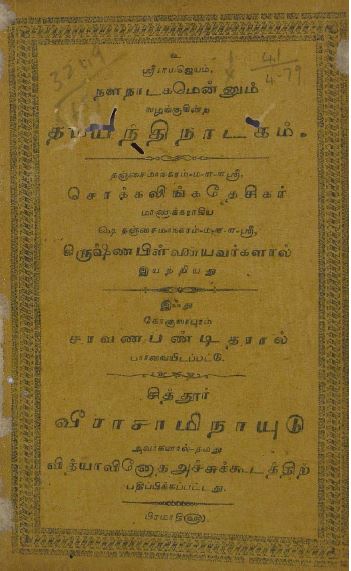 உ
ஸ்ரீராமஜெயம்.
நளநாடகமென்னும்
வழங்குகின்ற
தமயந்திநாடகம்.
தஞ்சைமாநகரம்-ம-ள-ள-ஸ்ரீ,
சொக்கலிங்கதேசிகர்
மாணாக்கராகிய
ஷெ தஞ்சைமாநகரம்-ம-ள-ள-ஸ்ரீ,
கிருஷ்ணபிள்ளையவர்களால்
இயற்றியது
இஃது
கோகுலாபுரம்
சரவணபண்டிதரால்
பார்வையிடப்பட்டு.
சித்தூர்
வீராசாமிநாயுடு
அவர்களால்-தமது
வித்யாவினோதஅச்சுக்கூடத்திற்
பதிப்பிக்கப்பட்டது.